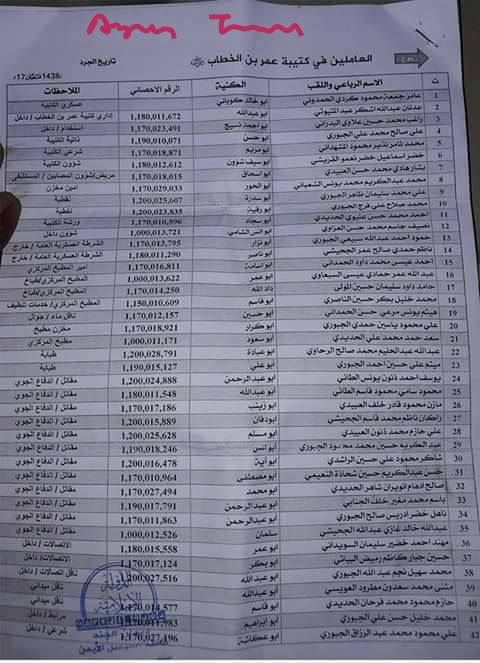 العاملين في كتيبة عمر بن الخطاب
تاريخ الجرد
1438/شعبان/17
ت الاسم الرباعي واللقب الكنية الرقم الاحصائي الملاحظات
1 عامر جمعة محمود كردي الحمدوني ابو خالد كوباني عسكري الكتيبة
2 عدنان عبدالله اشكر عبد المتيوتي ابو عبدالله 1,180,011,672 إداري كتيبة عمر بن الخطاب / داخل
3 راغب محمد حسين علاوي البدراني ابو احمد نسيج 1,170,023,491 استخدام / داخل
4 علي صالح محمد علي الجبوري ابو حسن 1,190,010,071 ذاتية الكتيبة
5 محمد ثامر نذير محمود المشهداني ابو مريم 1,170,018,871 شرعي الكتيبة
6 خضر اسماعيل خضر نعمو القريشي ابو سيف شؤون 1,180,012,612 شؤون الكتيبة
7 بشار هادي محمد حسن العبيدي ابو اسحاق 1,170,018,615 مريض/شؤون المصابين / المستشفى
8 محمد عبدالكريم محمد يونس الشعباني ابو الحور 1,170,029,033 امين مخزن
9 علي محمد سليمان ظاهر الجبوري ابو سدرة 1,200,025,607 نقطية
10 محمد صلاح علي فرج الجبوري ابو رقية 1,200,023,835 نقطية
11 احمد محمد حسن عليوي الحديدي ابو سجاد 1,170,010,596 ورشة الكتيبة
12 نصيف جاسم محمد حسن العزاوي ابو انس الشامي 1,000,013,721 شؤون داخل
13 حمود احمد عبدالله سبيعي الجبوري ابو نزار 1,170,013,795 الشرطة العسكرية العامة / خارج
14 ناظم حمدي صالح عمر الحجيشي ابو ناصر 1,180,011,290 الشرطة العسكرية العامة / خارج
15 احمد عيسى محمد داود الحمداني ابو اسامة 1,170,016,811 امير المطبخ المركزي
16 عبد الله عمر حمادي عيسى السبعاوي ابو عمر 1,000,013,622 المطبخ المركزي/طباخ
17 حامد داود سليمان حسين المولى داد الله 1,170,014,250 المطبخ المركزي/طباخ
18 محمد خليل بكر حسين الناصري ابو قاسم 1,150,010,609 المطبخ المركزي/ خدمات تنظيف
19 هيثم يونس مرعي حسن الحمداني ابو حسين 1,170,012,157 ناقل ماء / جوال
20 علي محمود ياسين حمدي الجبوري ابو كرار 1,170,018,921 مخزن مطبخ
21 سعد حمد محمد علي الحديدي ابو سعود 1,000,011,171 مطبخ المركزي
22 عبدالله عبدالحليم محمد صالح الرحاوي ابو عبادة 1,200,028,791 طبابة
23 ميثم علي حسين احمد الجبوري ابو علي 1,190,015,127 طبابة
24 يوسف احمد ذنون يونس الطائي ابو عبدالرحمن 1,200,024,888 مقاتل / الدفاع الجوي
25 محمود سامي محمود قاسم الطائي ابو عبدالله 1,180,011,548 مقاتل / الدفاع الجوي
26 مازن محمود قادر خلف العبيدي ابو زينب 1,170,017,186 مقاتل / الدفاع الجوي
27 زاكان ناظم محمد قاسم الجحيشي ابودفان 1,200,015,889 مقاتل / الدفاع الجوي
28 علي حازم محمد ذنون العبيدي ابو مسلم 1,200,025,628 مقاتل / الدفاع الجوي
29 عبد الكريم حسين محمد محمود الجبوري ابو انس 1,190,018,246 مقاتل / الدفاع الجوي
30 شاكر محمود علي حسين الراشدي ابو آية 1,200,016,478 مقاتل / الدفاع الجوي
31 حسن عبدالكريم حسين شحاذة النعيمي ابو مصطفى 1,170,010,964 مقاتل / الدفاع الجوي
32 صالح ادهام نويران شاهر الحديدي ابو محمد 1,170,027,494 مقاتل / الدفاع الجوي
33 باسم محمد مغير خلف الجنابي ابو عبدالرحمن 1,190,017,791 مقاتل / الدفاع الجوي
34 ناهل خضر ادريس صالح الجبوري ابو عبدالرحمن 1,170,011,863 مقاتل / الدفاع الجوي
35 عبدالله خالد غازي عبدالله الجحيشي سلمان 1,000,012,526 مقاتل / الدفاع الجوي
36 مهند احمد خضير سليمان السويداني ابو عمر 1,180,015,558 الاتصالات / داخل
37 حسين جبار كاظم رميض البياتي ابو بكر الاتصالات/ داخل
38 محمد سهيل نجم عبد الله الجبوري ابو عبد الله 1,200,027,516 ناقل اتصالات / داخل
39 مثنى محمد سعدون مطرود العويسي ابو عبد الله ناقل ميداني
40 حازم محمود محمد فرحان الحديدي ابو قاسم 1,170,014,577 ناقل ميداني
41 محمد خليل حسن علي الجبوري ابو ابراهيم 1,170,011,983 مرابط / داخل
42 علي محمود محمد عبد الرزاق الجبوري ابو عكاشة 1,170,027,196 شرعي / داخل